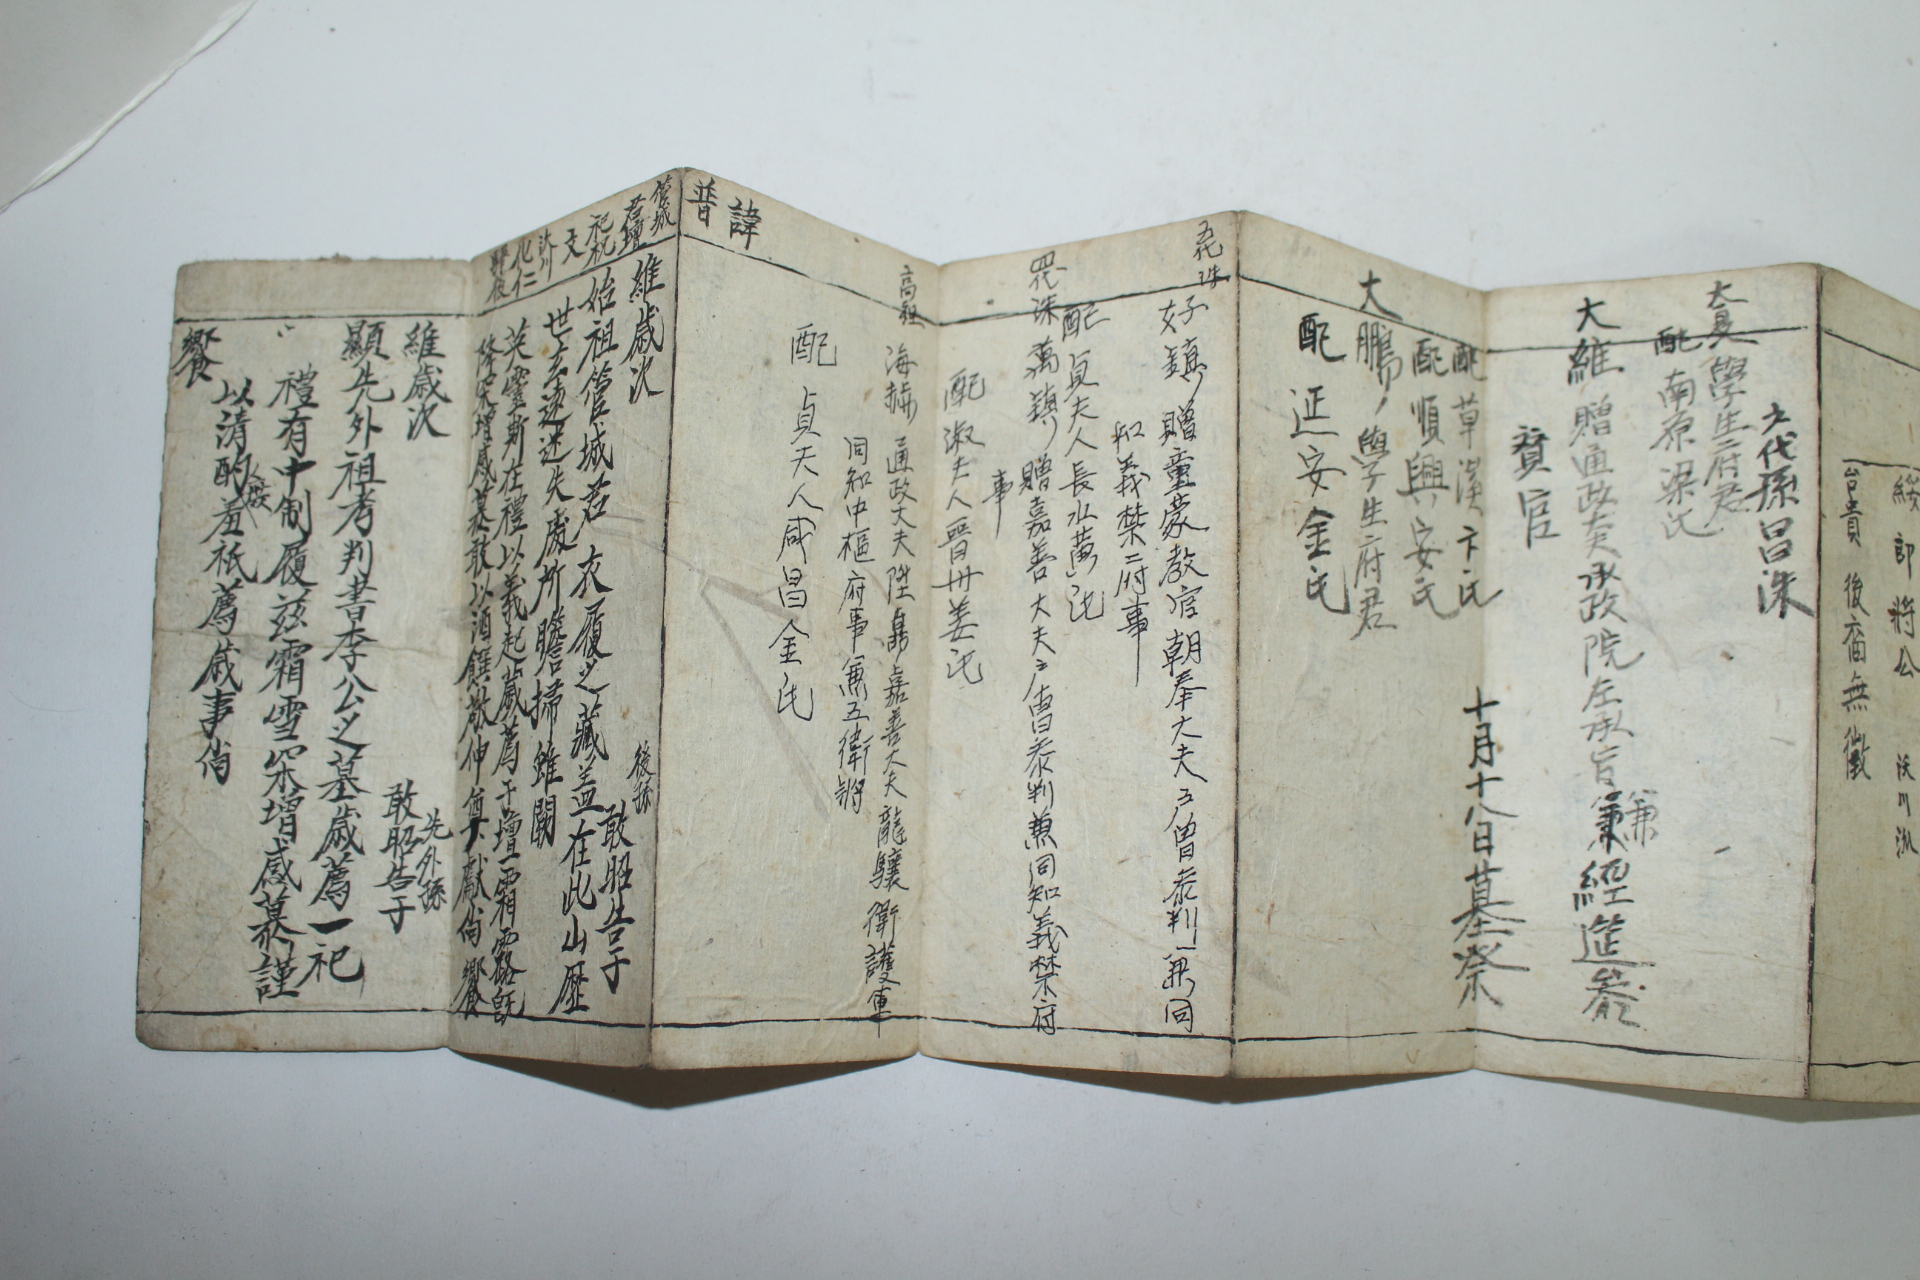 綏郎將公 沃川派
台貴 後裔無徵
六代孫昌洙
大昊 學生府君
配 南原梁氏
大維 贈通政大夫承政院左承旨兼經筵參
兼
贊官
十月十八日墓祭
配草溪卞氏
配順興安氏
大鵬 學生府君
配 延安金氏
五代 洙
好鎭 贈童蒙敎官朝奉大夫 戶曹參判兼同
知義禁府事
配 貞夫人長水黃氏
四代 洙
萬鎭 贈嘉善大夫 戶曹參判兼同知義禁府
事
配 淑夫人晉州姜氏
高祖
海 通政大夫陞 嘉善大夫龍驤衛護軍
同知中樞府事兼五衛將
配 貞夫人咸昌金氏
諱
普
管城
君壇
祀祝
文
沃川
化仁
維歲次
後孫
敢昭告于
始祖管城君衣履之藏盖在此山歷
世玄遠迷失處所瞻掃雖闕
英靈斯在禮以義起歲薦于壇霜露旣
降采增感慕敢以酒饌敬伸奠獻尙饗
維歲次
先外孫
敢昭告于
顯先外祖考判書李公之墓歲薦一祀
禮有中制履玆霜雪采增感慕謹
以淸酌羞祗薦歲事尙
饗